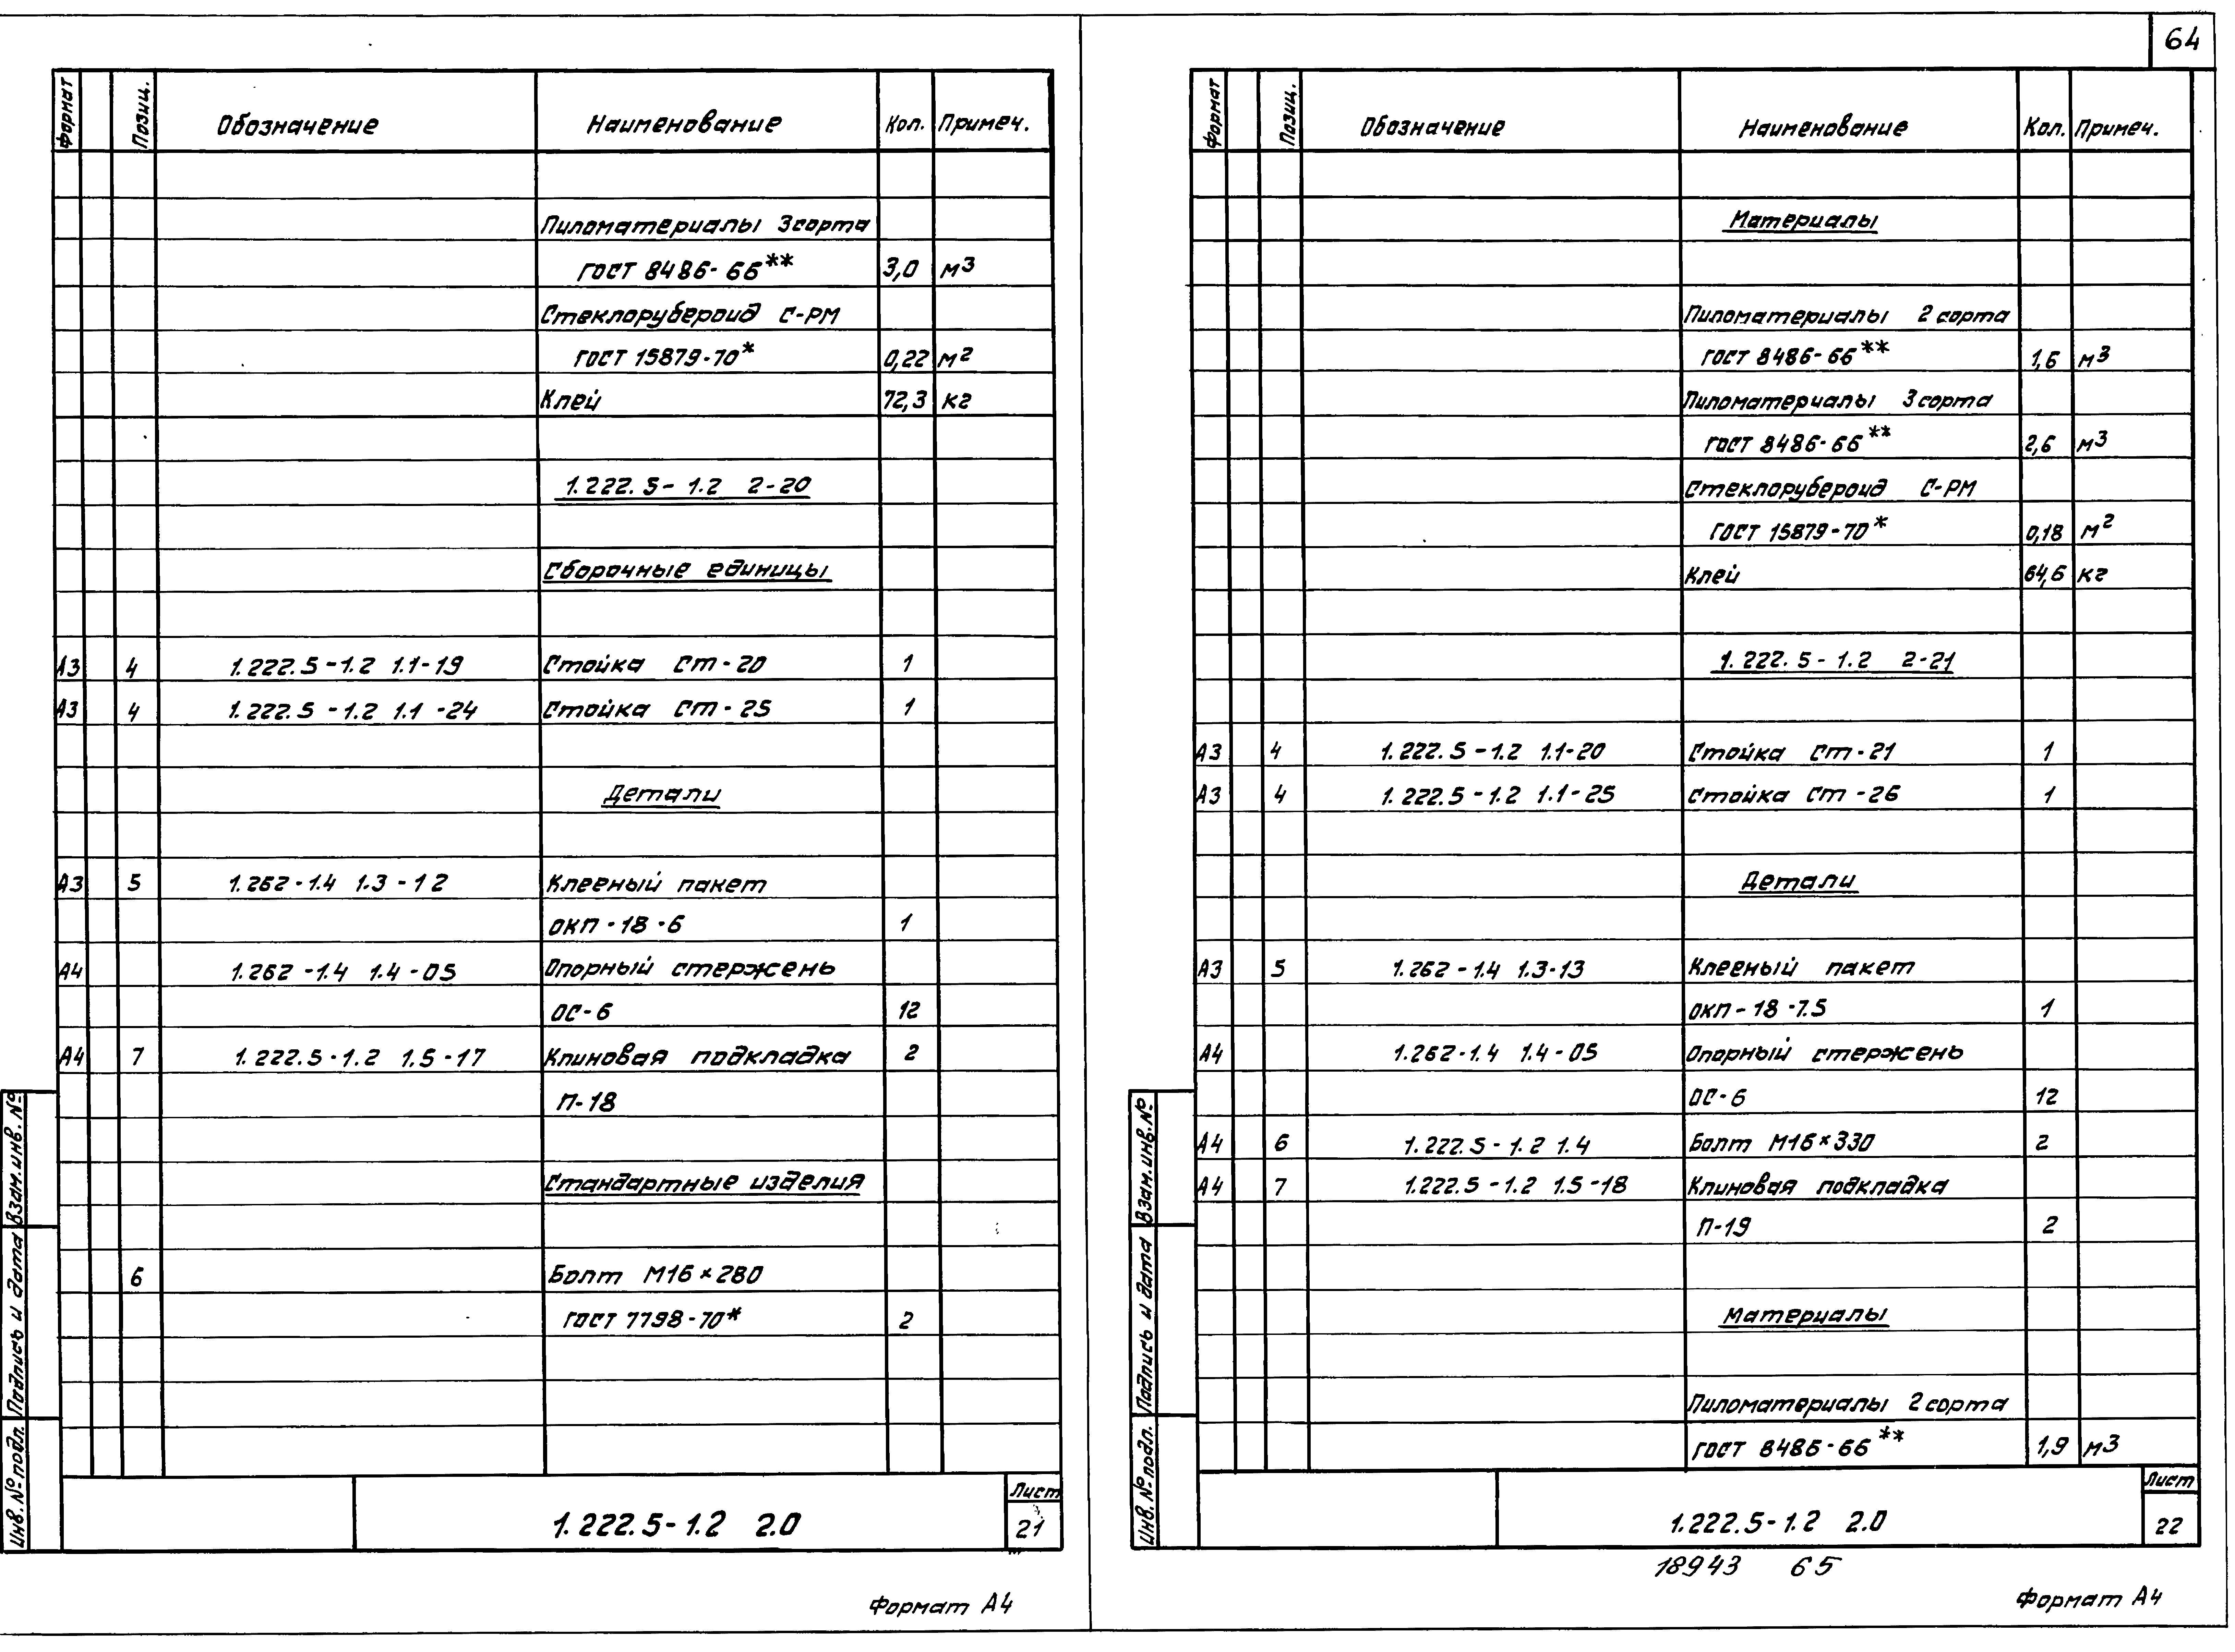 64
Формат Позиц. Обозначение Наименование Кол. Примеч.
Пиломатериалы 3 сорта
ГОСТ 8486-66** 3,0 м3
Стеклорубероид С-РМ
ГОСТ 15879-70* 0,22 м2
Клей 72,3 кг
1.222.5-1.2 2-20
Сборочные единицы
А3 4 1.222.5-1.2 1.1-19 Стойка Ст-20 1
А3 4 1.222.5-1.2 1.1-24 Стойка Ст-25 1
Детали
А3 5 1.262-1.4 1.3-12 Клееный пакет
ОКП-18-6 1
А4 1.262-1.4 1.4-05 Опорный стержень
ОС-6 12
А4 7 1.222.5-1.2 1.5-17 Клиновая подкладка 2
П-18
Стандартные изделия
6 Болт М16×280
ГОСТ 7798-70* 2
Инв. № подл. Подпись и дата Взам. инв. №
1.222.5-1.2 2.0
Лист
21
Формат А4
Формат Позиц. Обозначение Наименование Кол. Примеч.
Материалы
Пиломатериалы 2 сорта
ГОСТ 8486-66** 1,6 м3
Пиломатериалы 3 сорта
ГОСТ 8486-66** 2,6 м3
Стеклорубероид С-РМ
ГОСТ 15879-70* 0,18 м2
Клей 64,6 кг
1.222.5-1.2 2-21
А3 4 1.222.5-1.2 1.1-20 Стойка Ст-21 1
А3 4 1.222.5-1.2 1.1-25 Стойка Ст-26 1
Детали
А3 5 1.262-1.4 1.3-13 Клееный пакет
ОКП-18-7.5 1
А4 1.262-1.4 1.4-05 Опорный стержень
ОС-6 12
А4 6 1.222.5-1.2 1.4 Болт М16×330 2
А4 7 1.222.5-1.2 1.5-18 Клиновая подкладка
П-19 2
Материалы
Пиломатериалы 2 сорта
ГОСТ 8486-66** 1,9 м3
Инв. № подл. Подпись и дата Взам. инв. №
1.222.5-1.2 2.0
Лист
22
18943 65
Формат А4